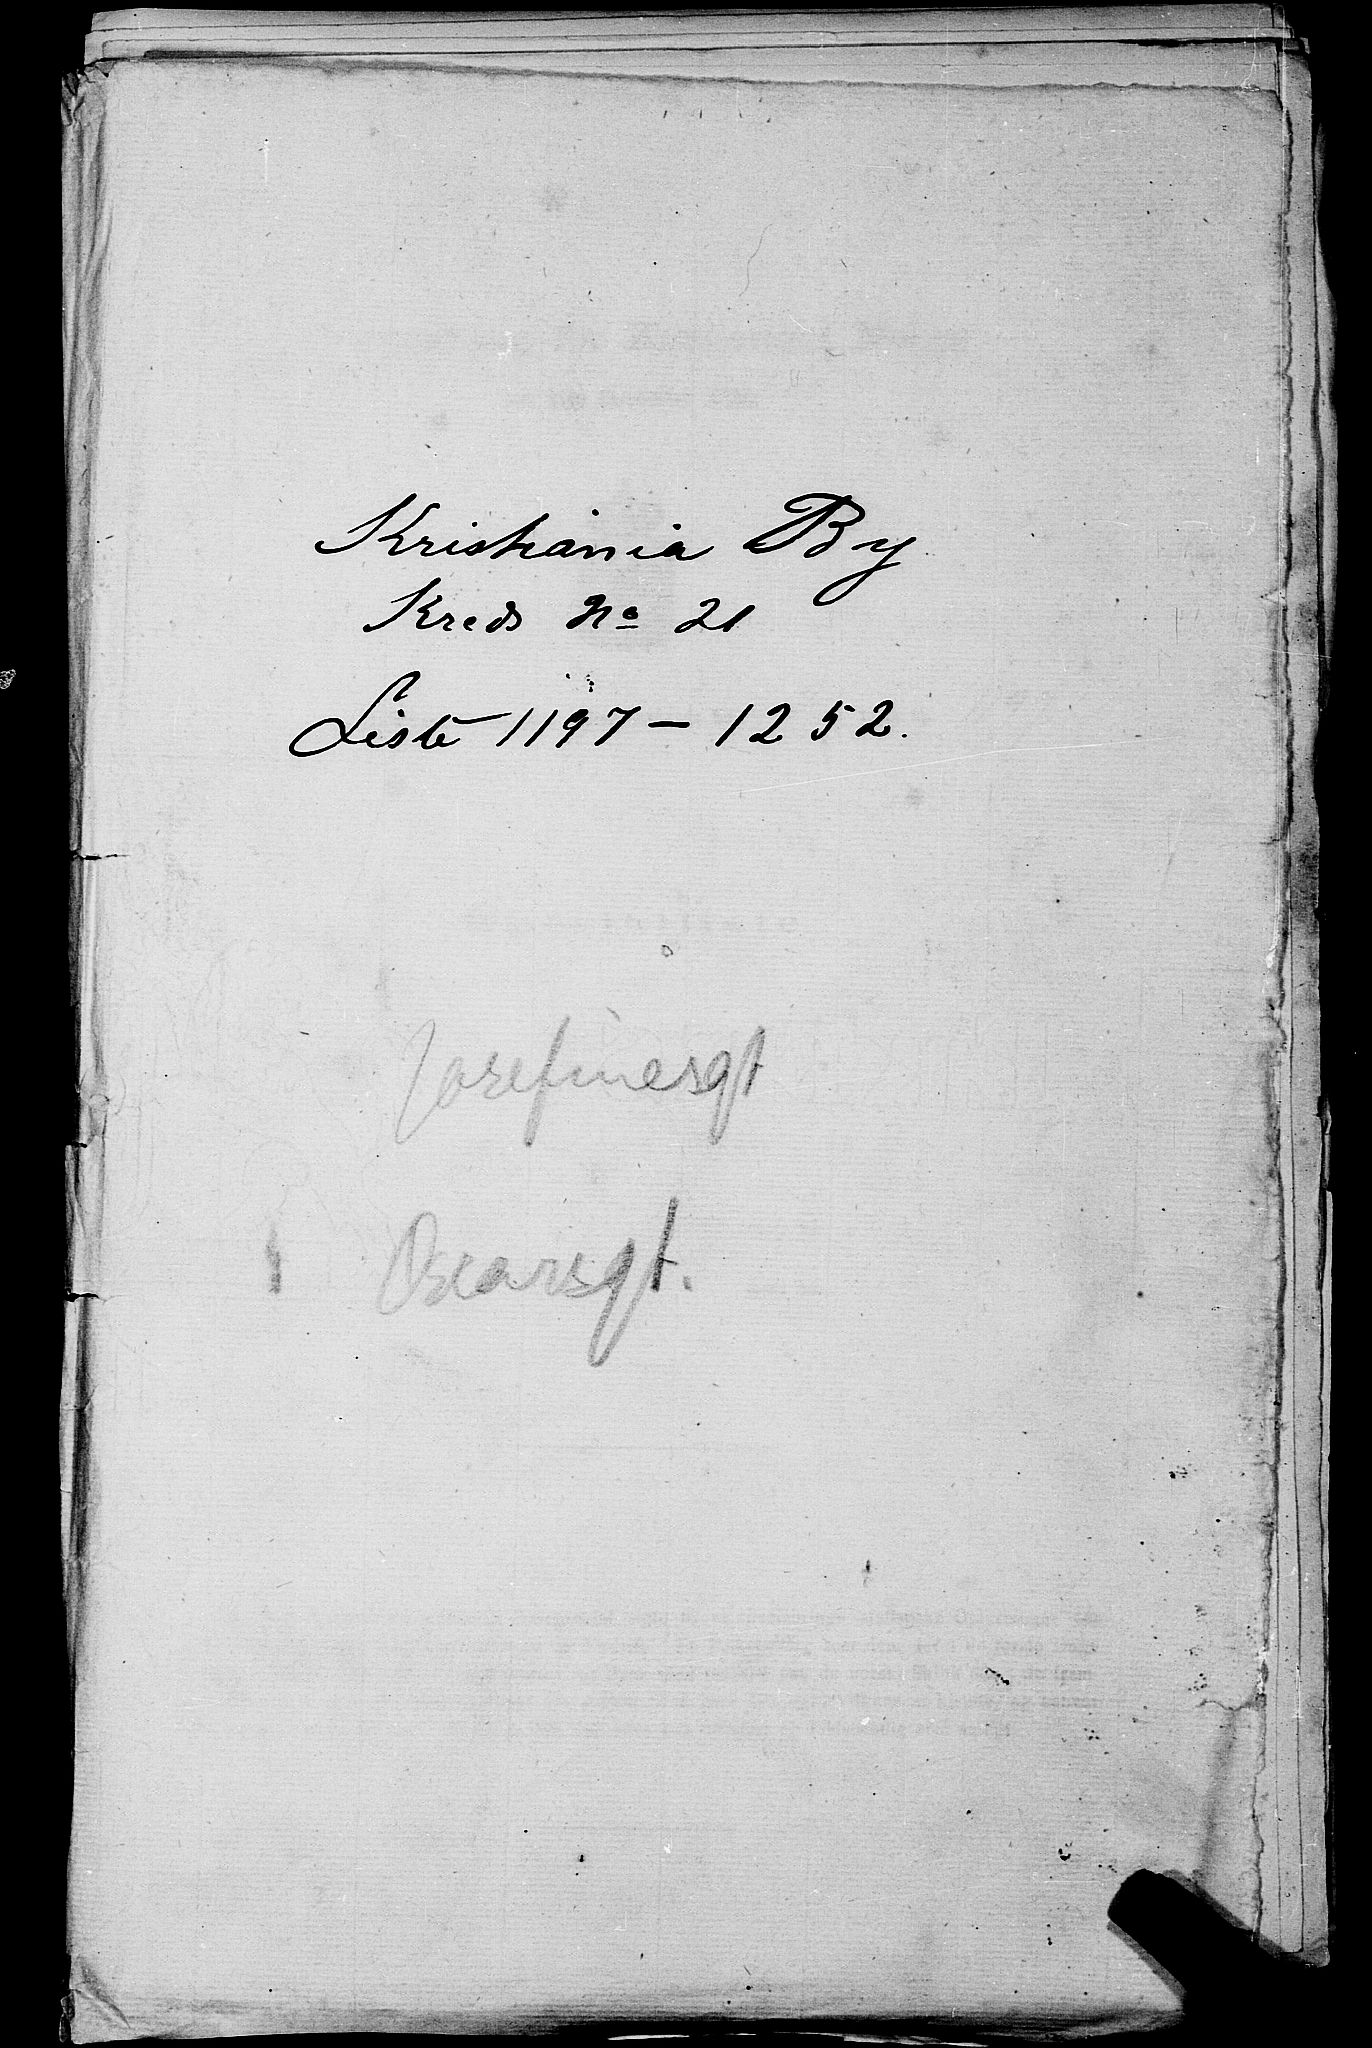 Kristiania By
Kreds No 21
Liste 1197 - 1252.
Josefinesgt
Oscarsgt.